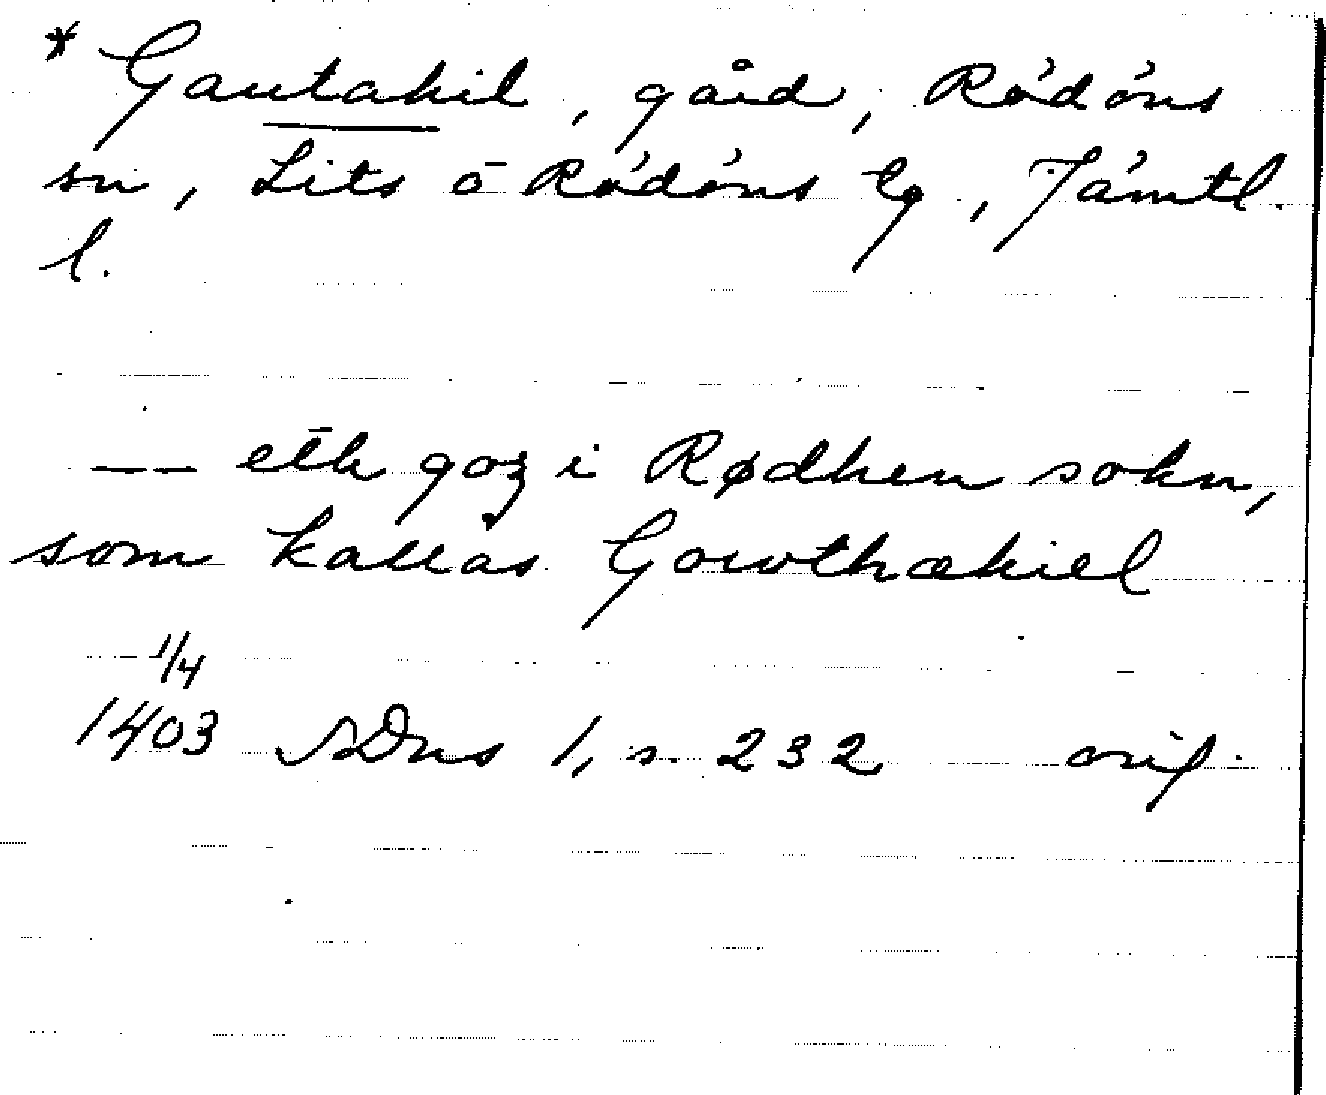 * Gautakil, gård, Rödöns
sn, Lits ō Rödöns tg, Jämtl.
l.
—— eth goz i Rødhen sokn,
som kallas Gowthækiel
1/4
1403 SDns 1, s. 232 orig.